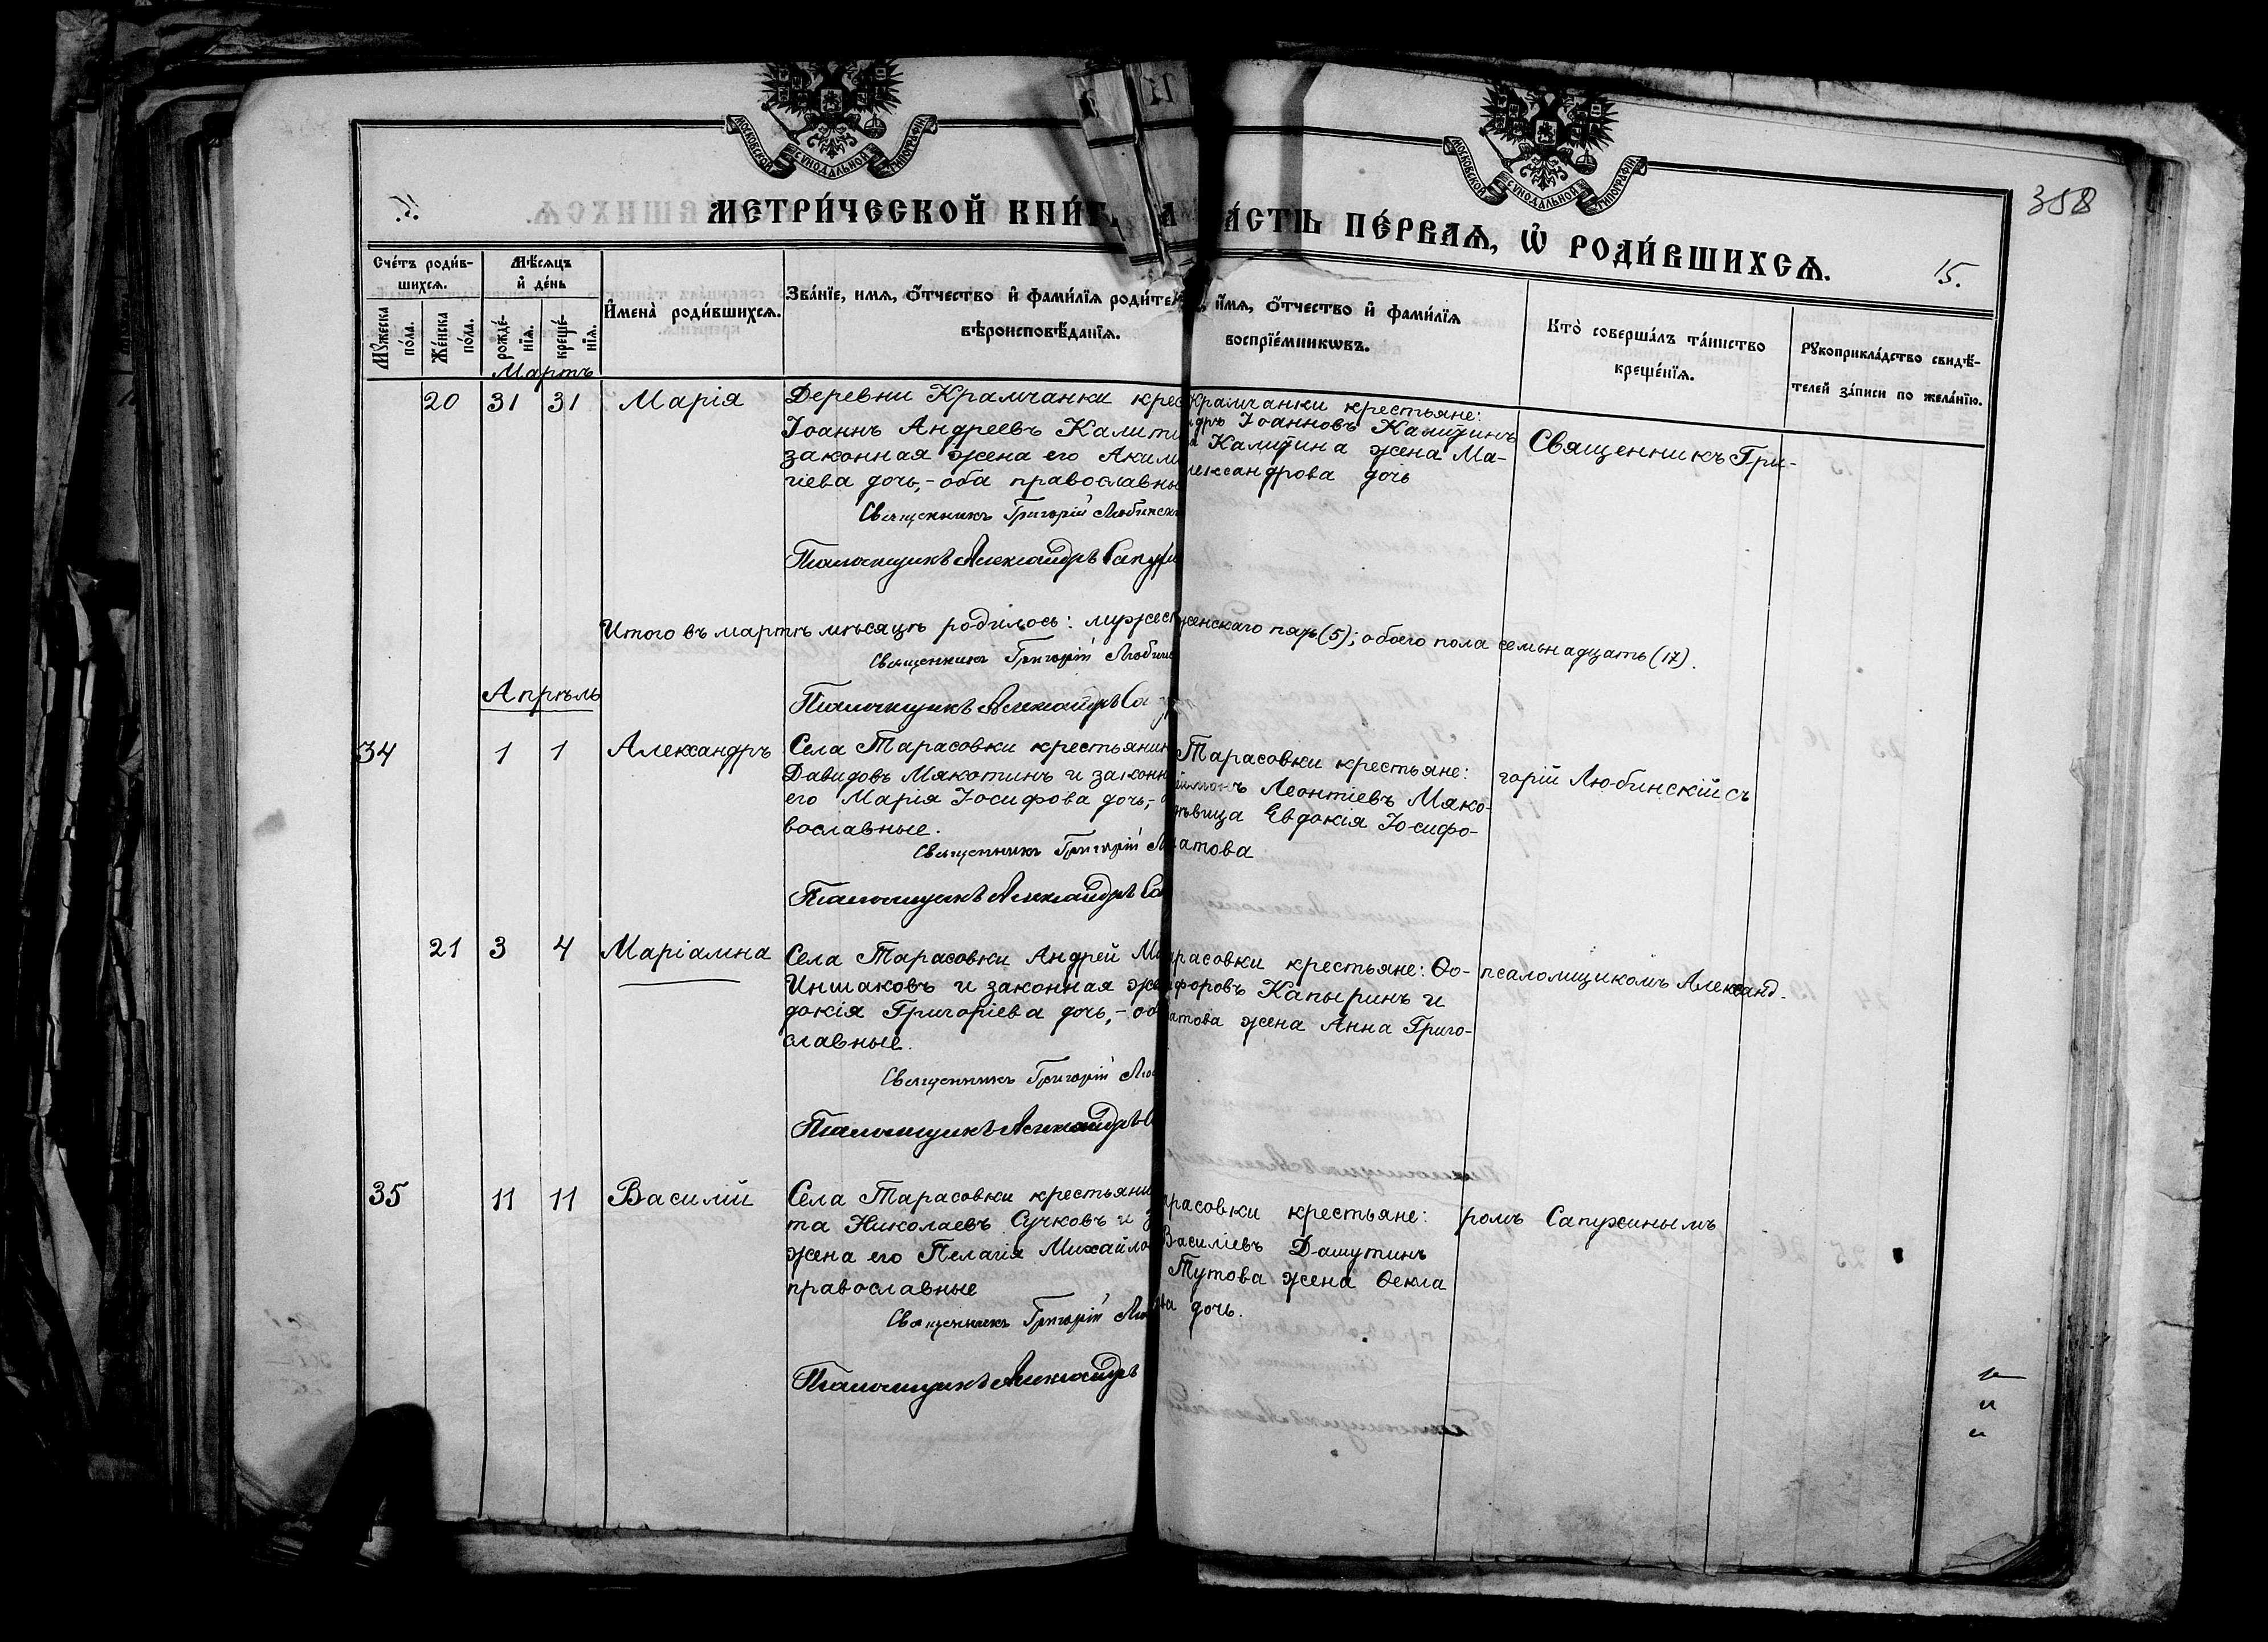 МОСКОВСКОЙ СѴНОДАЛЬНОЙ ТИПОГРАФІИ
МОСКОВСКОЙ СѴНОДАЛЬНОЙ ТИПОГРАФІИ
358
МЕТРИ́ЧЕСКОЙ КНИ́Г
А́СТЬ ПЕ́РВАѦ, Ѡ҆ РОДИ́ВШИХСѦ.
15.
Сче́тъ роди́в-
шихсѧ.
Мѣ́сѧцъ
и҆ де́нь
Мꙋ́жеска
по́ла.
Же́нска
по́ла.
рожде́-
нїѧ.
креще́-
нїѧ.
И҆мена̀ роди́вшихсѧ.
Зва́нїе, имѧ, ѻ҆́тчество и҆ фами́лїѧ роди́те
вѣроисповѣ́данїѧ.
и҆́мѧ, ѻ҆́тчество и҆ фами́лїѧ
воспрїе́мникѡвъ.
Кто̀ соверша́лъ та́инство
креще́нїѧ.
Рꙋкоприкла́дство свидѣ́-
телей за́писи по жела́нїю.
Мартъ
20 31 31 Марія
Деревни Крамчанки крес
Іоаннъ Андреевъ Калити
законная жена его Акили
гіева дочь,- оба православны
Священникъ Григорій Любинскі
Псаломщикъ Александръ Сапуж
Крамчанки крестьяне:
ндръ Іоанновъ Калитинъ
Калитина жена Ма-
лександрова дочь
Священникъ Гри-
Итого въ мартѣ мѣсяцѣ родилось: мужеск
женскаго пять (5); обоего пола семьнадцать (17).
Священникъ Григорій Любинс
Псаломщикъ Александръ Са
Апрѣль
34 1 1 Александръ
Села Тарасовки крестьянин
Давидовъ Мякотинъ и законн
его Марія Іосифова дочь,-
вославные.
Священникъ Григорій Л
Псаломщикъ Александръ Са
Тарасовки крестьяне:
Леонтіевъ Мяко-
ѣвица Евдокія Іосифо-
атова
горій Любинскій съ
21 3 4 Маріамна
Села Тарасовки Андрей Ма
Иншаковъ и законная же
докія Григоріева дочь,- об
славные.
Священникъ Григорій Лю
Псаломщикъ Александръ С
арасовки крестьяне: Ѳо-
форовъ Капыринъ и
атова жена Анна Григо-
псаломщикомъ Александ-
35 11 11 Василій
Села Тарасовки крестьяни
та Николаевъ Сучковъ и з
жена его Пелагія Михайло
православные
Священникъ Григорій Лю
Псаломщикъ Александръ
арасовки крестьяне:
Василіевъ Дашутинъ
Тутова жена Ѳекла
ва дочь.
ромъ Сапужинымъ